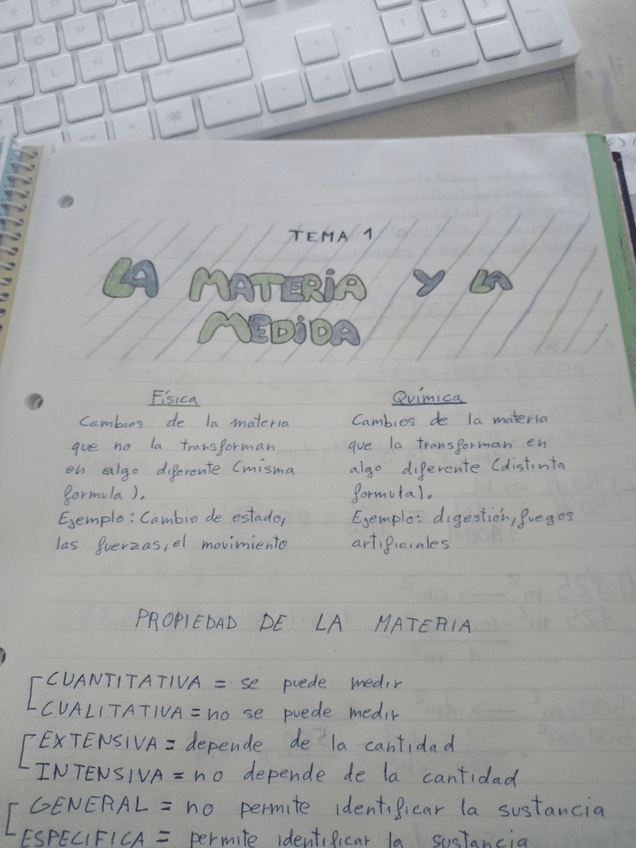 TEMA 1
LA MATERIA Y LA
MEDIDA
Física
Cambios de la materia
que no la transforman
en algo diferente (misma
formula).
Ejemplo: Cambio de estado,
las fuerzas, el movimiento
Química
Cambios de la materia
que la transforman en
algo diferente (distinta
formula).
Ejemplo: digestión, fuegos
artificiales
PROPIEDAD DE LA MATERIA
CUANTITATIVA = se puede medir
CUALITATIVA = no se puede medir
EXTENSIVA = depende de la cantidad
INTENSIVA = no depende de la cantidad
GENERAL = no permite identificar la sustancia
ESPECIFICA = permite identificar la sustancia